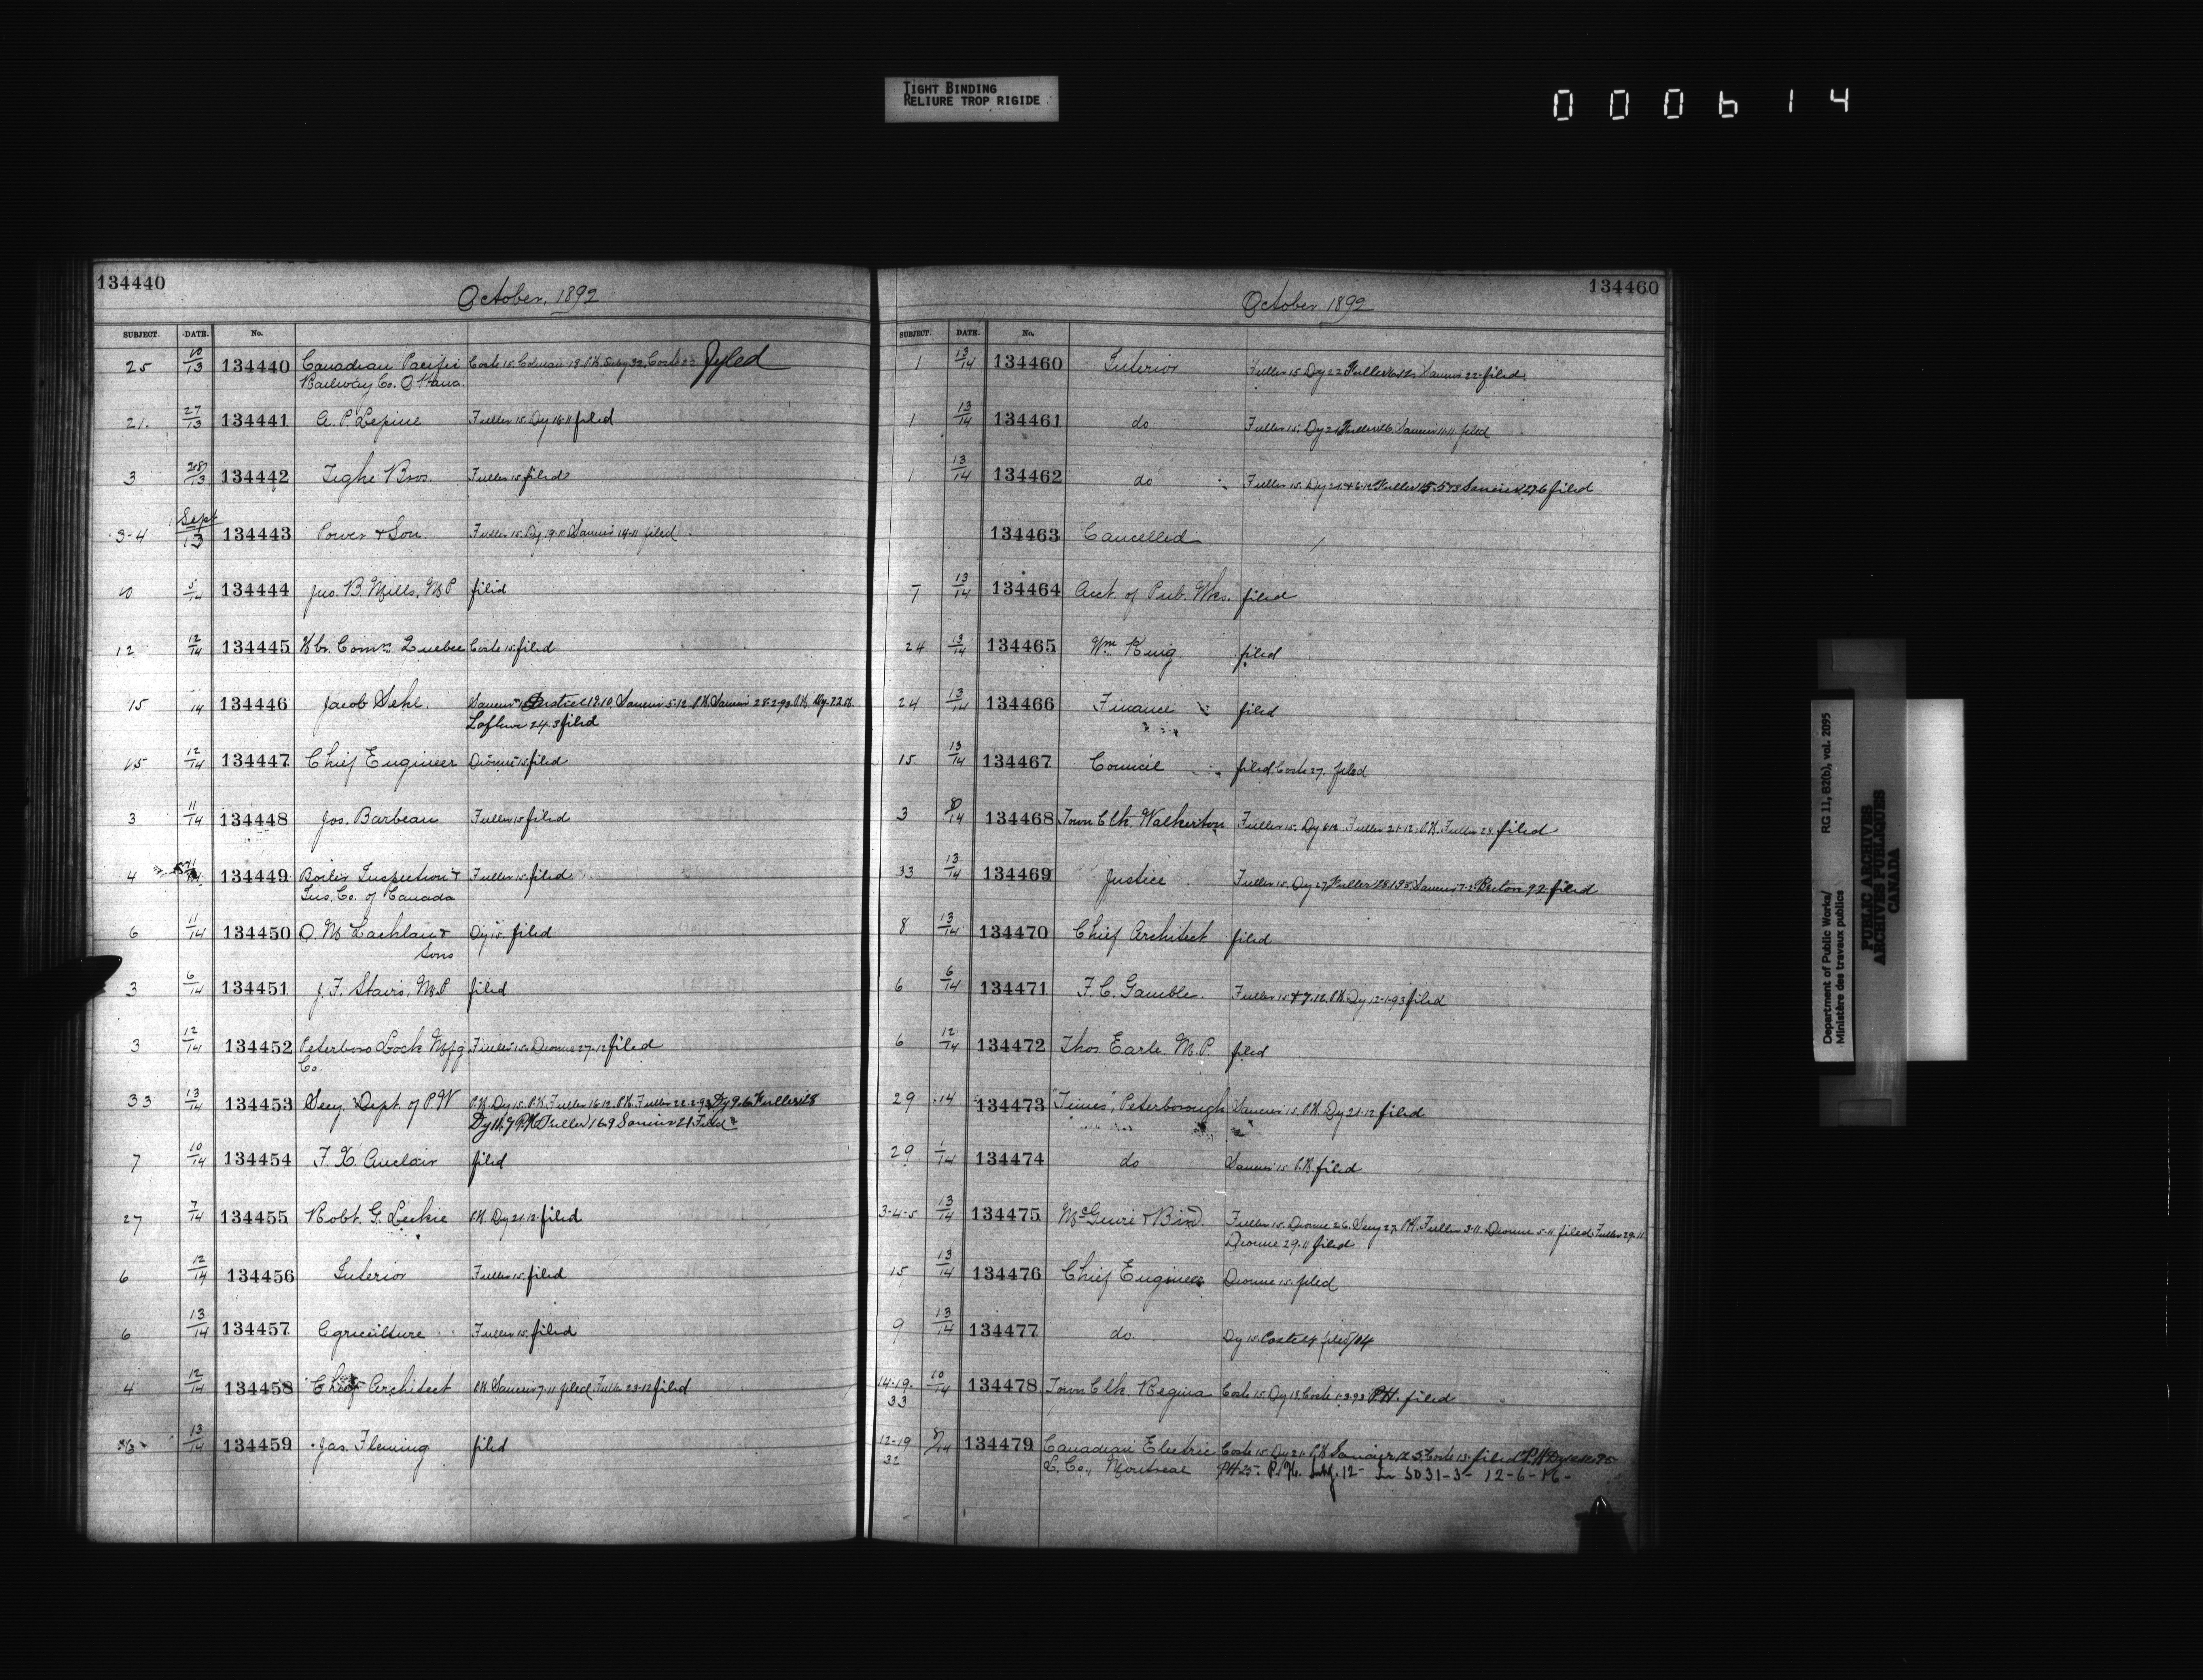 TIGHT BINDING
RELIURE TROP RIGIDE
000614
134440
October, 1892
SUBJECT. DATE. No.
25 10/13 134440 Canadian Pacific Coste 15. Filed
Railway Co. Ottawa.
21. 27/13 134441 A. P. Lepine Fuller 15. Dy 18.11 filed
3 13 134442 Tighe Bros. Fuller 15. filed
3-4 Sept/13 134443 Power & Son Fuller 15. Dy 19. 14.11 filed
10 5/14 134444 Jno. B. Mills, M P filed
12 12/14 134445 Hbr. Comrs Quebec Coste 15. filed
15 14 134446 Jacob Sehl. 5.12. P.H. 28.2.93. P.H. Dy. 22.
24.3 filed
15 12/14 134447 Chief Engineer Dionne 15. filed
3 11/14 134448 Jos. Barbeau Fuller 15 filed
4 134449 Boiler Inspection & Fuller 15. filed
Ins. Co. of Canada
6 11/14 134450 O. McLachlan & Dy 15. filed
Sons
3 6/14 134451 J. F. Stairs, M.P filed
3 12/14 134452 Peterboro Lock Mfg Fuller 15. Dionne 27.12 filed
Co.
33 13/14 134453 Secy. Dept. of P W P.H. Dy 15. P.H. Fuller 16.12. P.H. Fuller 22.2.93 Dy 9.6 Fuller
Dy 11.7 P.H. Fuller 16.9 Filed
7 10/14 134454 F. X. Auclair filed
27 7/14 134455 Robt. G. Leckie P.H. Dy 21.12. filed
6 12/14 134456 Interior Fuller 15. filed
6 13/14 134457 Agriculture Fuller 15. filed
4 12/14 134458 Chief Architect P.H. 7.11 filed. Fuller 23.12 filed
13/14 134459 Jas. Fleming filed
134460
October 1892
SUBJECT. DATE. No.
1 13/14 134460 Interior Fuller 15. Dy 22 Fuller 22. filed.
1 13/14 134461 do Fuller 15. Dy 21 11.11 filed
1 13/14 134462 do Fuller 15. Dy 21 & 6.12 Fuller filed
134463 Cancelled
7 13/14 134464 Acct. of Pub. Wks. filed
24 13/14 134465 Wm King filed
24 13/14 134466 Finance filed
15 13/14 134467 Council filed. Coste 27. filed
3 14 134468 Town Clk. Walkerton Fuller 15. Dy 6.12. Fuller 21.12. P.H. Fuller 23 filed
33 13/14 134469 Justice Fuller 15. Dy 27 Fuller filed
8 13/14 134470 Chief Architect filed
6 6/14 134471 F. C. Gamble. Fuller 15. & 7.12. P.H. Dy 12.1.93 filed
6 12/14 134472 Thos Earle M.P. filed
29 14 134473 "Times", Peterborough 15. P.H. Dy 21.12 filed
29 1/14 134474 do 15. P.H. filed
3-4-5 13/14 134475 McGuire & Bird. Fuller 15. Dionne 26. Secy 27. P.H. Fuller 3.11. Dionne 5.11 filed. Fuller 29.11
Dionne 29.11 filed
15 13/14 134476 Chief Engineer Dionne 15. filed
9 13/14 134477 do. Dy 15. Coste filed
14-19. 10/14 134478 Town Clk. Regina Coste 15. Dy 18. Coste 1.3.93 P.H. filed
33
12-19 14 134479 Canadian Electric Coste 15. Dy 21. P.H. Coste 13. filed P.H.
32 L. Co., Montreal P.H. 25. P.H. 12- 5031-3- 12-6-
Department of Public Works/
Ministère des travaux publics
RG 11, B2(b), vol. 2095
PUBLIC ARCHIVES
ARCHIVES PUBLIQUES
CANADA